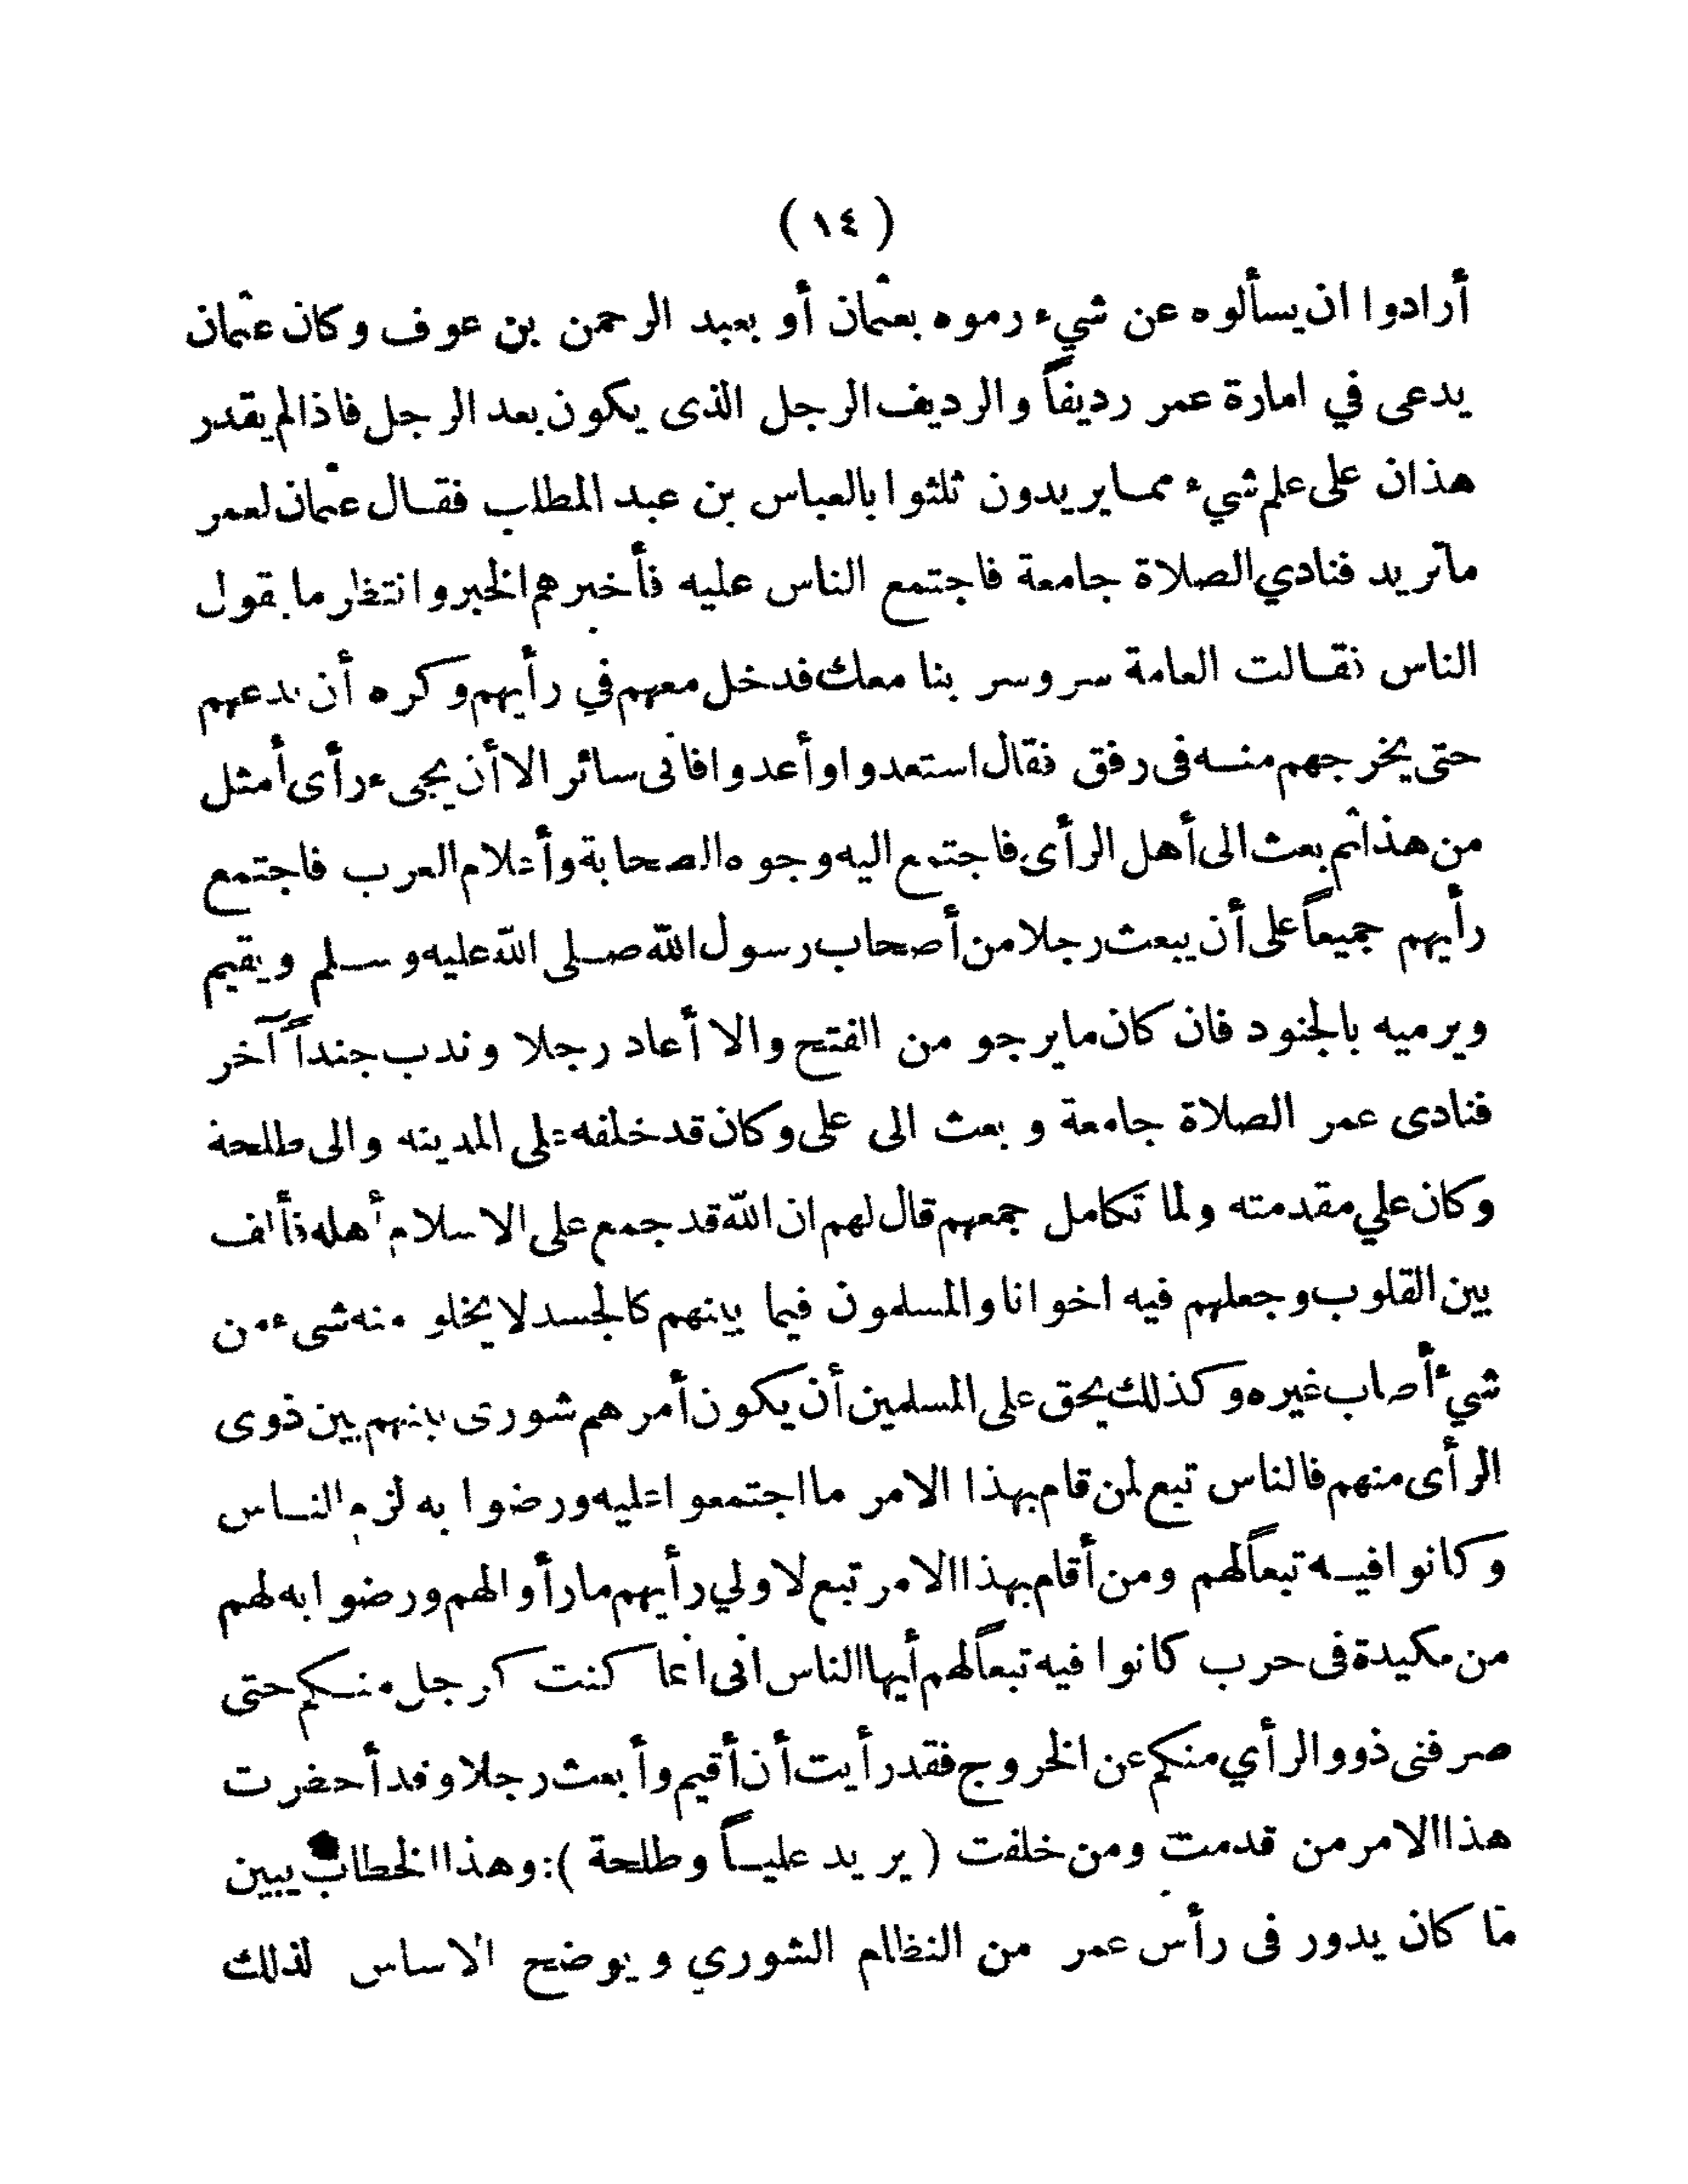 ( ١٤ )
أرادوا ان يسألوه عن شيء رموه بعثمان أو بعبد الرحمن بن عوف وكان عثمان
يدعى في امارة عمر رديفاً والرديف الرجل الذى يكون بعد الرجل فاذا لم يقدر
هذان على علم شيء ممـا يريدون ثلثوا بالعباس بن عبد المطلب فقـال عثمان لعمر
ما تريد فنادي الصلاة جامعة فاجتمع الناس عليه فأخبرهم الخبر وانتظر ما يقول
الناس فقـالت العامة سر وسر بنا معك فدخل معهم في رأيهم وكره أن يدعهم
حتى يخرجهم منـه فى رفق فقال استعدوا وأعدوا فانى سائر الا أن يجىء رأى أمثل
من هذا ثم بعث الى أهل الرأى فاجتمع اليه وجوه الصحابة وأعلام العرب فاجتمع
رأيهم جميعاً على أن يبعث رجلا من أصحاب رسول الله صـلى الله عليه وسـلم ويقيم
ويرميه بالجنود فان كان ما يرجو من الفتح والا أعاد رجلا وندب جنداً آخر
فنادى عمر الصلاة جامعة وبعث الى على وكان قد خلفه على المدينه والى طلحة
وكان علي مقدمته ولما تكامل جمعهم قال لهم ان الله قد جمع على الاسلام أهله فألف
بين القلوب وجعلهم فيه اخوانا والمسلمون فيما بينهم كالجسد لا يخلو منه شىء من
شيء أصاب غيره وكذلك يحق على المسلمين أن يكون أمرهم شورى بينهم بين ذوى
الرأى منهم فالناس تبع لمن قام بهذا الامر ما اجتمعوا عليه ورضوا به لزم النـاس
وكانوا فيـه تبعاً لهم ومن أقام بهذا الامر تبع لاولي رأيهم ما رأوا لهم ورضوا به لهم
من مكيدة فى حرب كانوا فيه تبعاً لهم أيها الناس انى انما كنت كرجل منـكم حتى
صرفنى ذوو الرأي منكم عن الخروج فقد رأيت أن أقيم وأبعث رجلا وقد أحضرت
هذا الامر من قدمت ومن خلفت ( يريد عليـاً وطلحة ): وهذا الخطاب يبين
ما كان يدور فى رأس عمر من النظام الشوري ويوضح الاساس لذلك